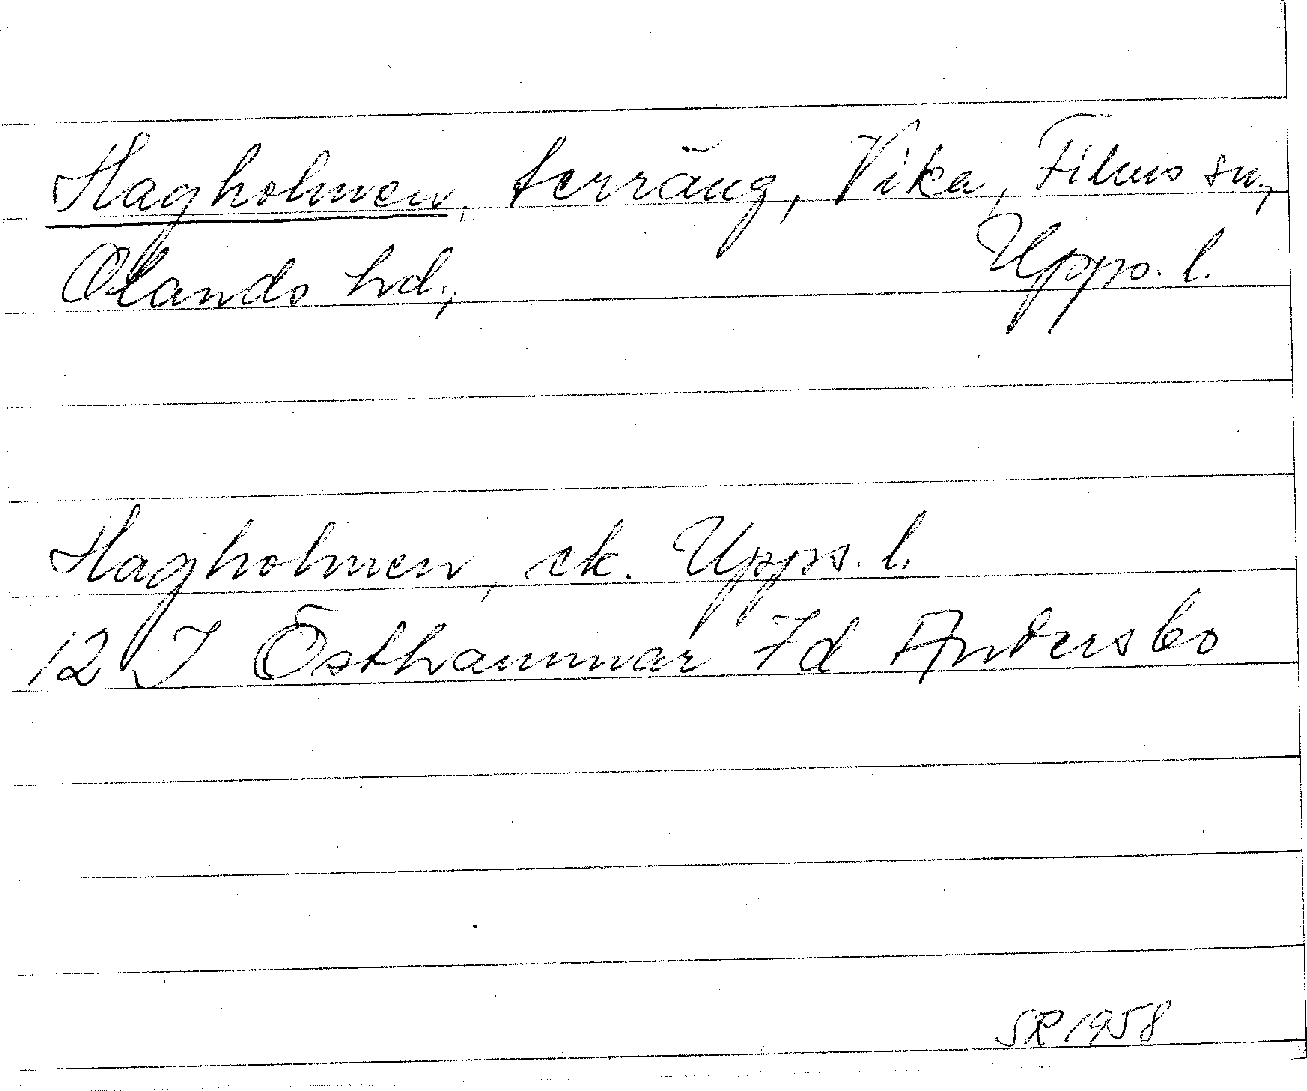 Hagholmen, terräng, Vika, Films sn,
Olands hd., Upps. l.
Hagholmen, ek. Upps. l.
12 I Östhammar 7d Andersbo
SR 1958